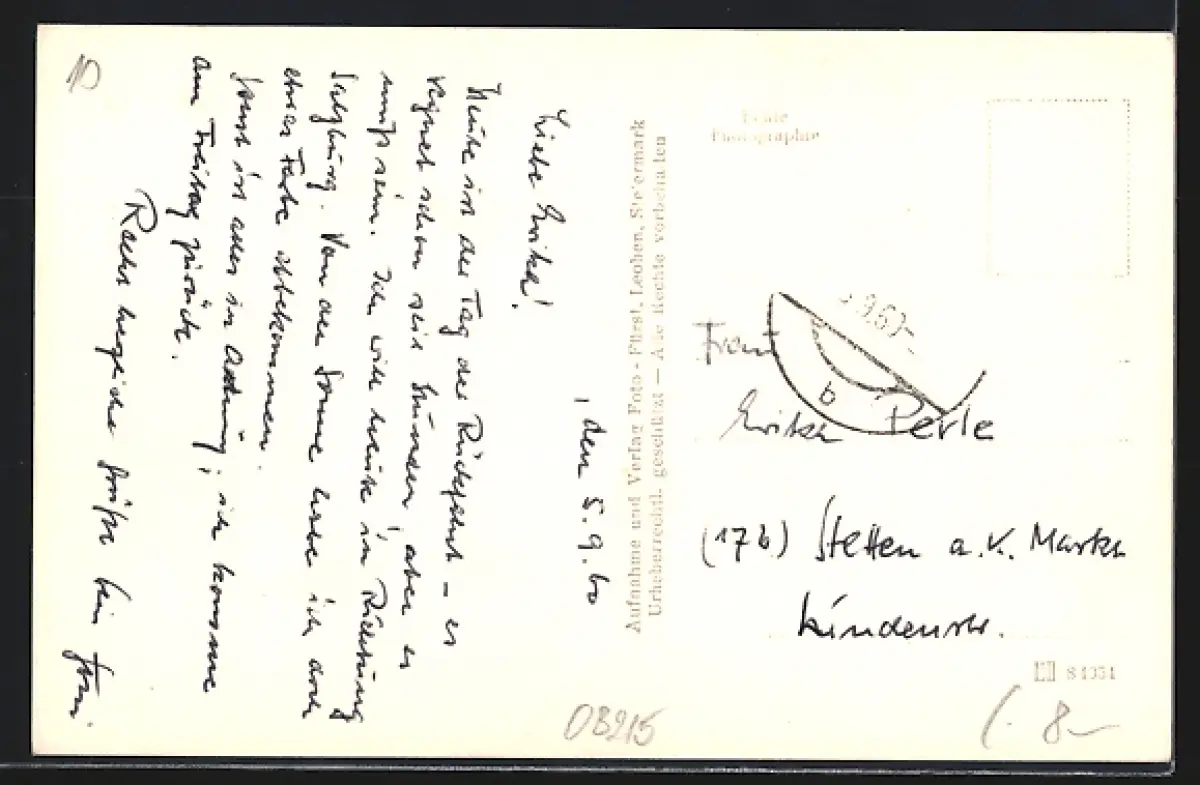 , den 5.9.60
Liebe Erika!
Heute ist der Tag der Rückfahrt – es
regnet schon seit Stunden, aber es
muß sein. Ich will heute in Richtung
Salzburg. Von der Sonne habe ich doch
etwas Farbe abbekommen.
Sonst ist alles in Ordnung; ich komme
am Freitag zurück.
Recht herzliche Grüße Dein
Aufnahme und Verlag Foto - Fürst, Leoben, Steiermark
Urheberrechtl. geschützt — Alle Rechte vorbehalten
Echte
Photographie
9.60-
b
Erika Perle
(17b) Stetten a.k. Markt
84354
08215
8-